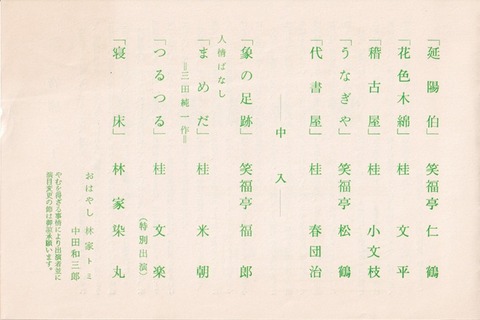 「延陽伯」笑福亭仁鶴
「花色木綿」桂文平
「稽古屋」桂小文枝
「うなぎや」笑福亭松鶴
「代書屋」桂春団治
──中入──
「象の足跡」笑福亭福郎
人情ばなし
「まめだ」桂米朝
=三田純一作=
「つるつる」桂文楽
(特別出演)
「寝床」林家染丸
おはやし 林家トミ
中田和三郎
やむを得ざる事情により出演者並に
演目変更の節は御諒承願います。